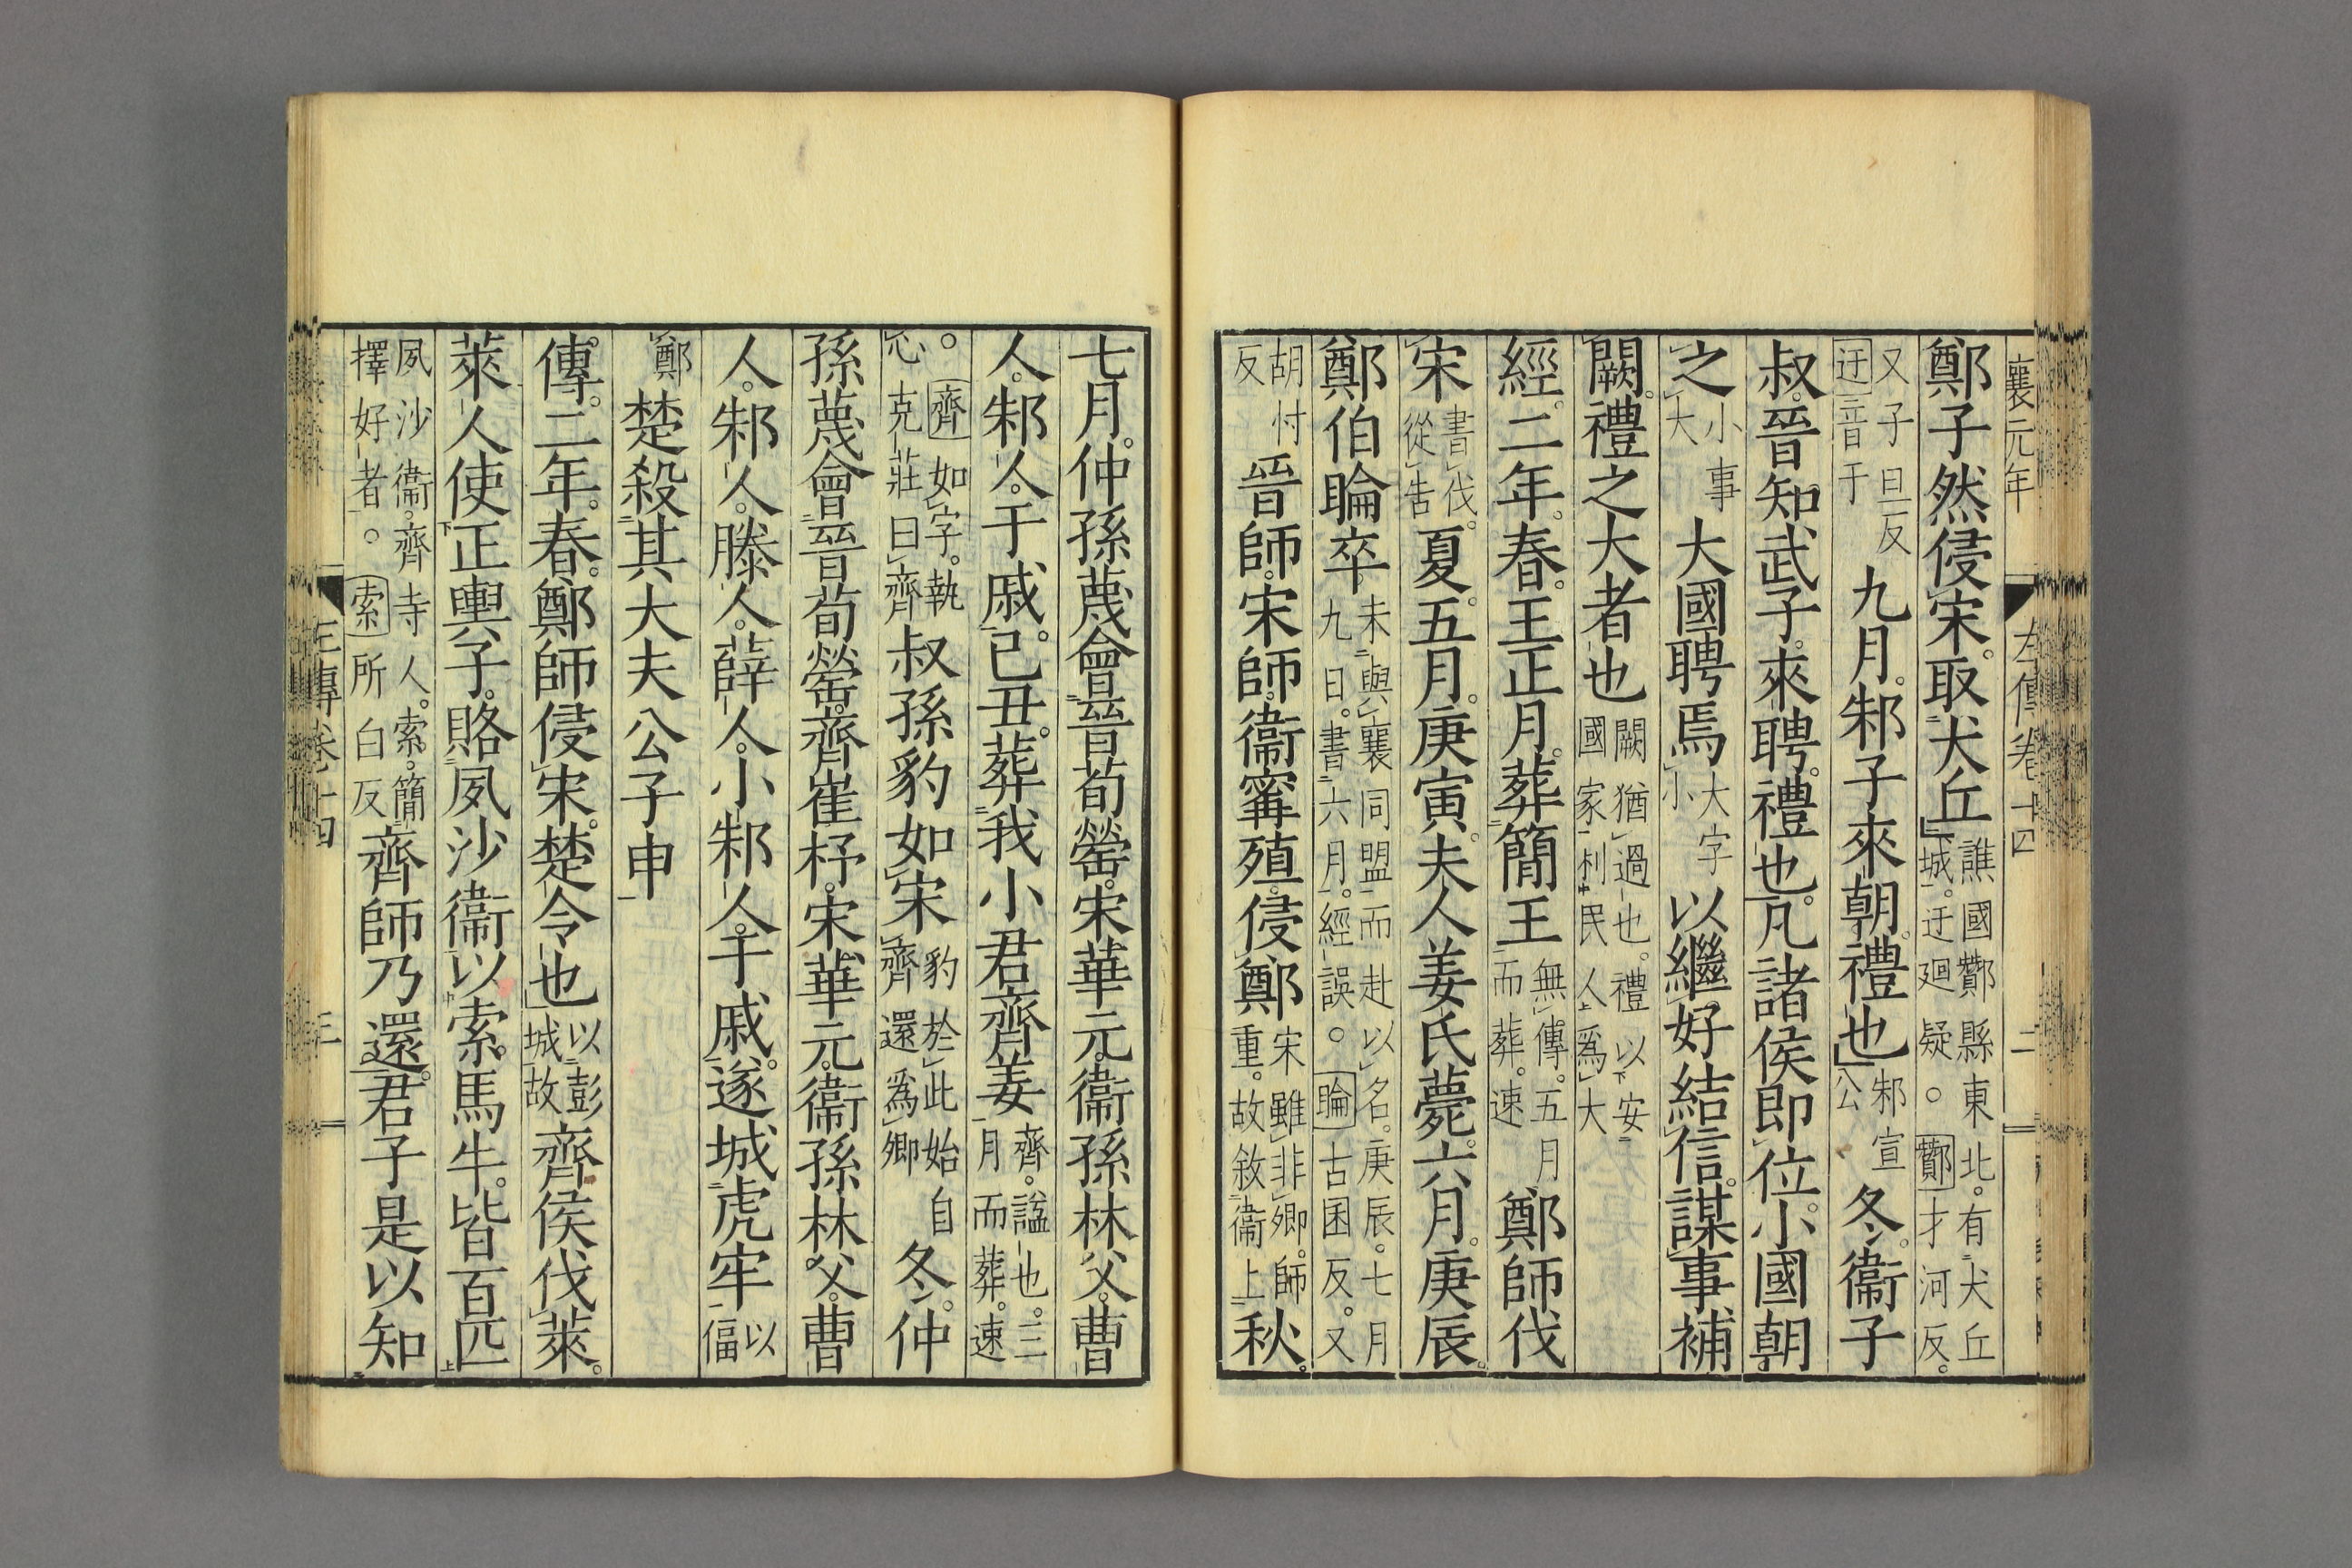 襄元年 左傳卷十四 二
鄭子然侵宋。取犬丘譙國酇縣東北。有犬丘城。迂廻疑。○酇才河反。
又子旦反迂音于九月。邾子來朝。禮也邾宣公冬。衞子
叔。晉知武子。來聘。禮也。凡諸侯即位。小國朝
之小事大大國聘焉大字小以繼好結信。謀事補
闕。禮之大者也闕猶過也。禮以安國家利民人爲大
經。二年。春。王正月。葬簡王無傳。五月而葬。速鄭師伐
宋書伐。從告夏。五月。庚寅。夫人姜氏薨。六月。庚辰。
鄭伯睔卒未與襄同盟而赴以名。庚辰。七月九日。書六月。經誤。○睔古囷反。又
胡忖反晉師。宋師。衞甯殖。侵鄭宋雖非卿。師重。故敘衞上秋。
七月。仲孫蔑會晉荀罃。宋華元。衞孫林父。曹
人。邾人。于戚。己丑。葬我小君齊姜齊。謚也。三月而葬。速
○齊如字。執心克莊曰齊叔孫豹如宋豹於此始自齊還爲卿冬。仲
孫蔑會晉荀罃。齊崔杼。宋華元。衞孫林父。曹
人。邾人。滕人。薛人。小邾人。于戚。遂城虎牢以偪
鄭楚殺其大夫公子申
傳。二年。春。鄭師侵宋。楚令也以彭城故齊侯伐萊。
萊人使正輿子。賂夙沙衞以索。馬牛。皆百匹
夙沙衞。齊寺人。索。簡擇好者。○索所白反齊師乃還。君子是以知
左傳卷十四 三